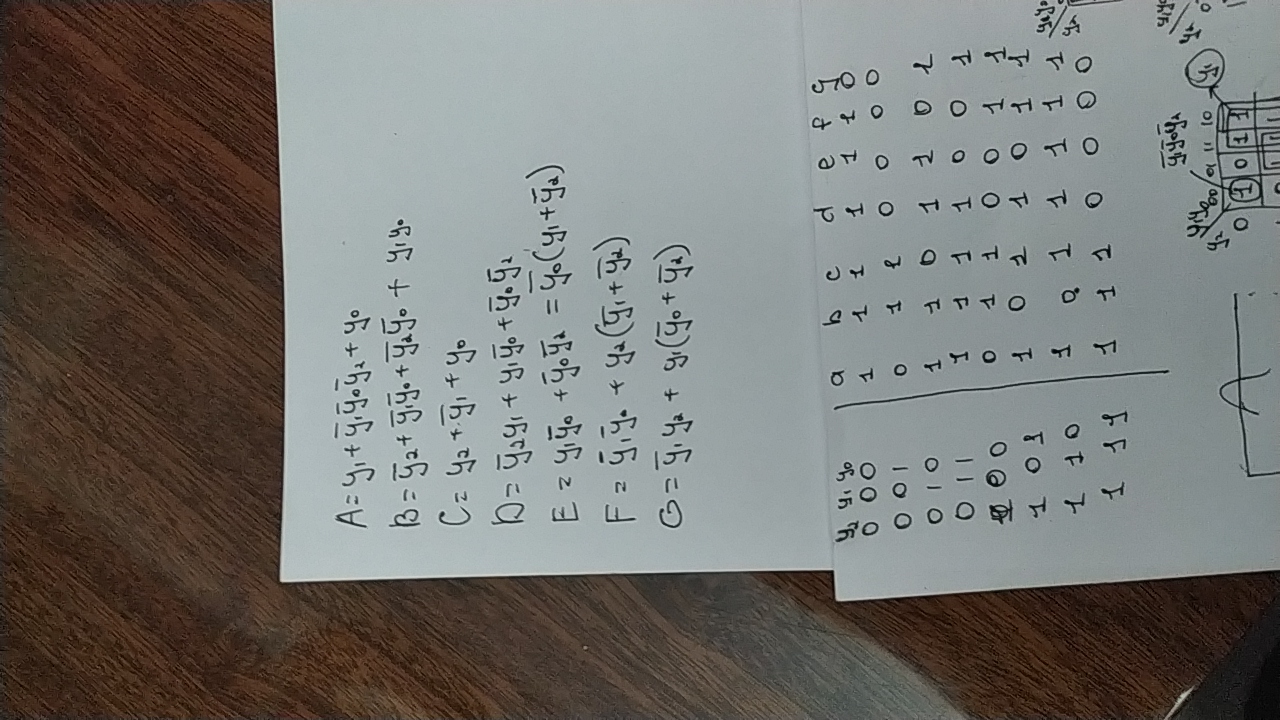 A = y₁ + ȳ₁ȳ₀ȳ₂ + y₀
B = ȳ₂ + ȳ₁ȳ₀ + ȳ₂ȳ₀ + y₁y₀
C = y₂ + ȳ₁ + y₀
D = ȳ₂y₁ + y₁ȳ₀ + ȳ₀ȳ₂
E = y₁ȳ₀ + ȳ₀ȳ₂ = ȳ₀(y₁ + ȳ₂)
F = ȳ₁ȳ₀ + y₂(ȳ₁ + ȳ₂)
G = ȳ₁y₂ + y₁(ȳ₀ + ȳ₂)
y₂ y₁ y₀ a b c d e f g
0 0 0 1 1 1 1 1 1 0
0 0 1 0 1 1 0 0 0 0
0 1 0 1 1 0 1 1 0 1
0 1 1 1 1 1 1 0 0 1
0 0 0 1 1 0 0 1 1
1 0 1 1 0 1 1 0 1 1
1 1 0 1 0 1 1 1 1 1
1 1 1 1 1 1 0 0 0 0
ȳ₁ȳ₀ȳ₂
y₂ y₁y₀ 00 01 11 10 y₁
0 1 0 1 1
A